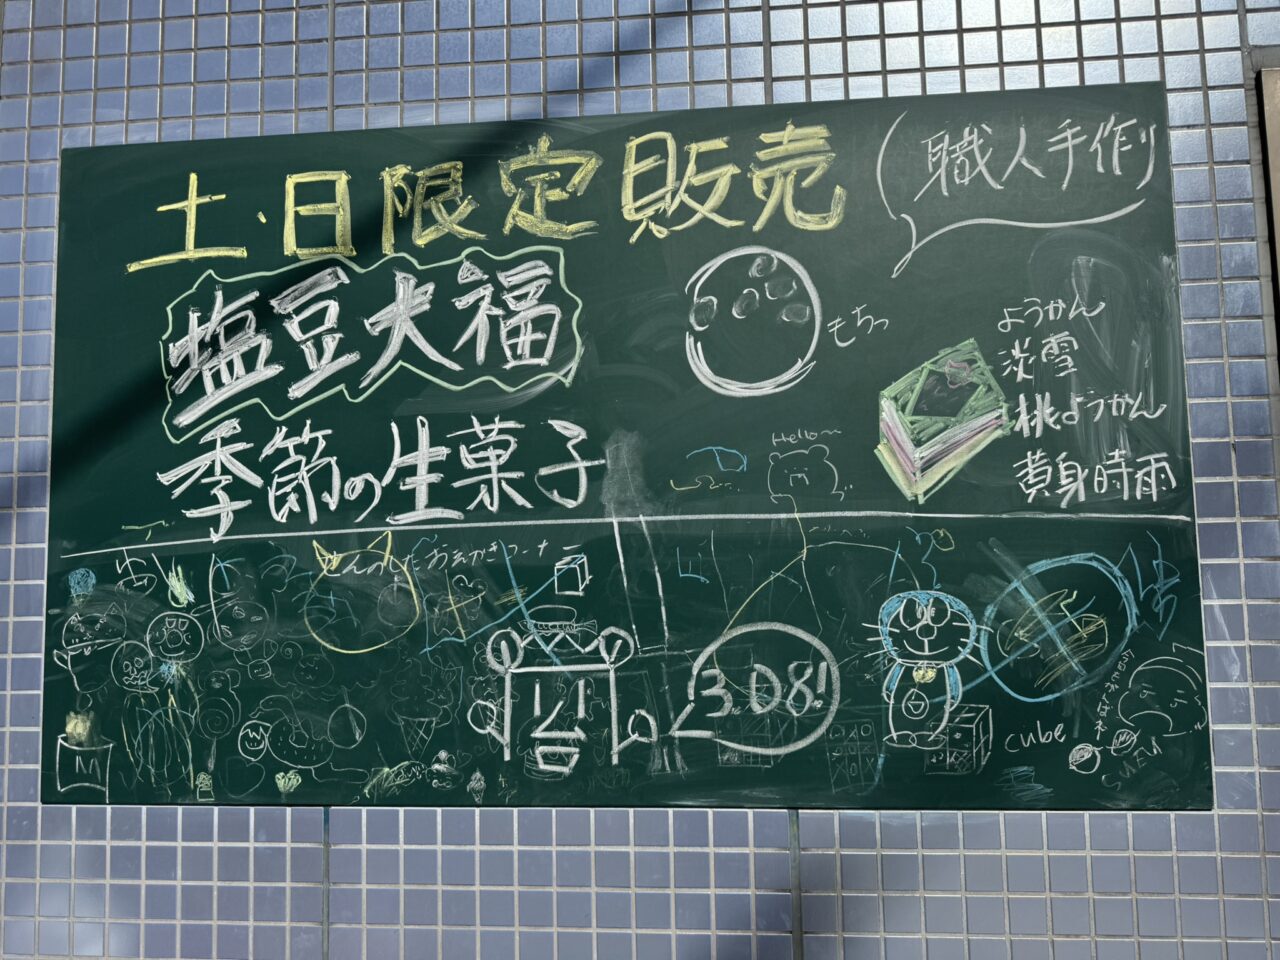 土・日限定販売
職人手作り
塩豆大福
もちっ
ようかん
淡雪
桃ようかん
黄身時雨
季節の生菓子
Hello～
おえかきコーナー
3.08!
cube
M